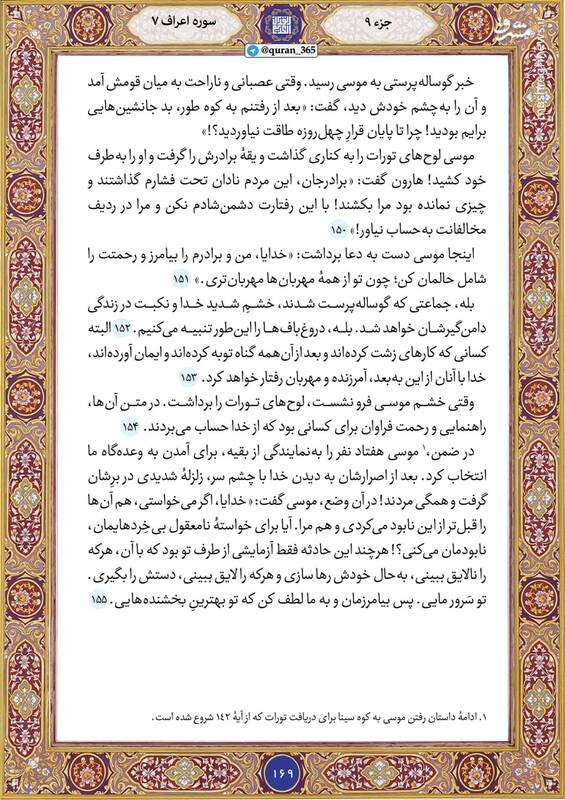 جزء ۹
سوره اعراف ۷
@quran_365
مشرق
خبر گوساله‌پرستی به موسی رسید. وقتی عصبانی و ناراحت به میان قومش آمد
و آن را به‌چشم خودش دید، گفت: «بعد از رفتنم به کوه طور، بد جانشین‌هایی
برایم بودید! چرا تا پایان قرارِ چهل‌روزه طاقت نیاوردید؟!»
موسی لوح‌های تورات را به کناری گذاشت و یقهٔ برادرش را گرفت و او را به‌طرف
خود کشید! هارون گفت: «برادرجان، این مردم نادان تحت فشارم گذاشتند و
چیزی نمانده بود مرا بکشند! با این رفتارت دشمن‌شادم نکن و مرا در ردیف
مخالفانت به‌حساب نیاور!» ۱۵۰
اینجا موسی دست به دعا برداشت: «خدایا، من و برادرم را بیامرز و رحمتت را
شامل حالمان کن؛ چون تو از همهٔ مهربان‌ها مهربان‌تری.» ۱۵۱
بله، جماعتی که گوساله‌پرست شدند، خشمِ شدید خدا و نکبت در زندگی
دامن‌گیرشان خواهد شد. بله، دروغ‌باف‌ها را این‌طور تنبیه می‌کنیم. ۱۵۲ البته
کسانی که کارهای زشت کرده‌اند و بعد از آن‌همه گناه توبه کرده‌اند و ایمان آورده‌اند،
خدا با آنان از این به‌بعد، آمرزنده و مهربان رفتار خواهد کرد. ۱۵۳
وقتی خشم موسی فرو نشست، لوح‌های تورات را برداشت. در متن آن‌ها،
راهنمایی و رحمت فراوان برای کسانی بود که از خدا حساب می‌بردند. ۱۵۴
در ضمن،۱ موسی هفتاد نفر را به‌نمایندگی از بقیه، برای آمدن به وعده‌گاه ما
انتخاب کرد. بعد از اصرارشان به دیدن خدا با چشم سر، زلزلهٔ شدیدی در برِشان
گرفت و همگی مردند! در آن وضع، موسی گفت: «خدایا، اگر می‌خواستی، هم آن‌ها
را قبل‌تر از این نابود می‌کردی و هم مرا. آیا برای خواستهٔ نامعقول بی‌خِردهایمان،
نابودمان می‌کنی؟! هرچند این حادثه فقط آزمایشی از طرف تو بود که با آن، هرکه
را نالایق ببینی، به‌حال خودش رها سازی و هرکه را لایق ببینی، دستش را بگیری.
تو سَرور مایی. پس بیامرزمان و به ما لطف کن که تو بهترینِ بخشنده‌هایی. ۱۵۵
۱. ادامهٔ داستان رفتن موسی به کوه سینا برای دریافت تورات که از آیهٔ ۱۴۲ شروع شده است.
۱۶۹